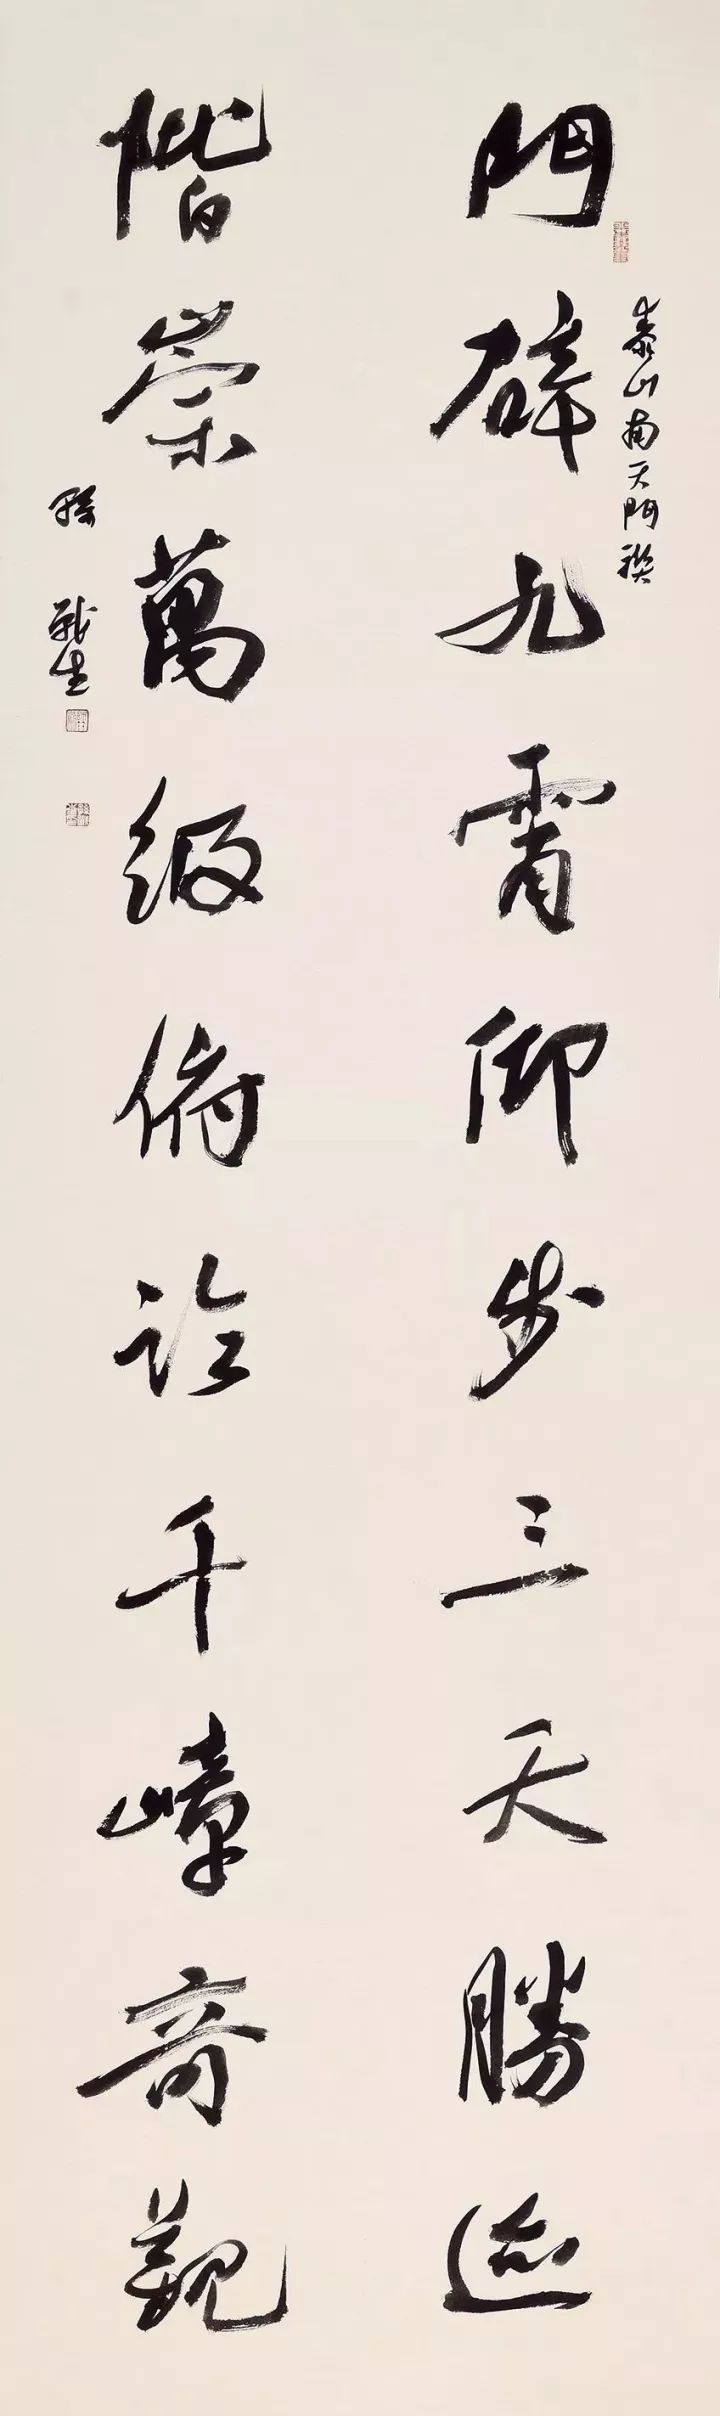 泰山南天門聯
門辟九霄仰步三天勝迹
階崇萬級俯臨千嶂奇觀